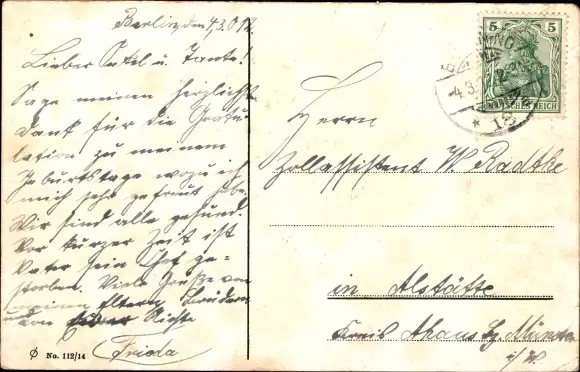 Berlin, den 4.3.01
Lieber Onkel u. Tante!
Sage meinen herzlichsten
Dank für die Gratu-
lation zu meinem
Geburtstage wozu ich
mich sehr gefreut habe.
Wir sind alle gesund.
Vor kurzer Zeit ist
Vater sein Chef ge-
storben. Viele Grüße von
meinen Eltern Brüdern
und von Nichte
Frieda
No. 112/14
5 5
DEUTSCHES REICH
Herrn
Zollassistent W. Radthe
in Alstätte
Kreis Ahaus Bz. Münster
i/W.